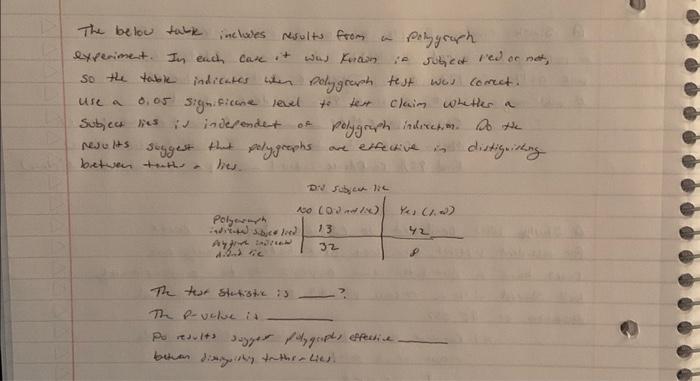 The below table includes results from a polygraph
experiment. In each case it was known if subject lied or not,
so the table indicates when polygraph test was correct.
Use a 0.05 significance level to test claim whether a
subject lies is independent of polygraph indication. Do the
results suggest that polygraphs are effective in distiguishing
between truths + lies.
Did subject lie
No (Did not lie) Yes (Lied)
Polygraph
indicated subject lied 13 42
polygraph indicated 32 8
didn't lie
The test statistic is ___?
The P-value is ___
Do results suggest polygraphs effective ___
between distinguishing truths + Lies.